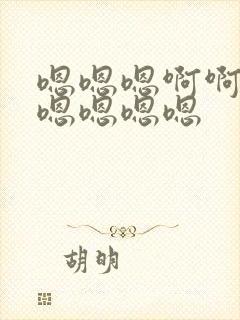 嗯嗯嗯啊啊
嗯嗯嗯嗯
胡明